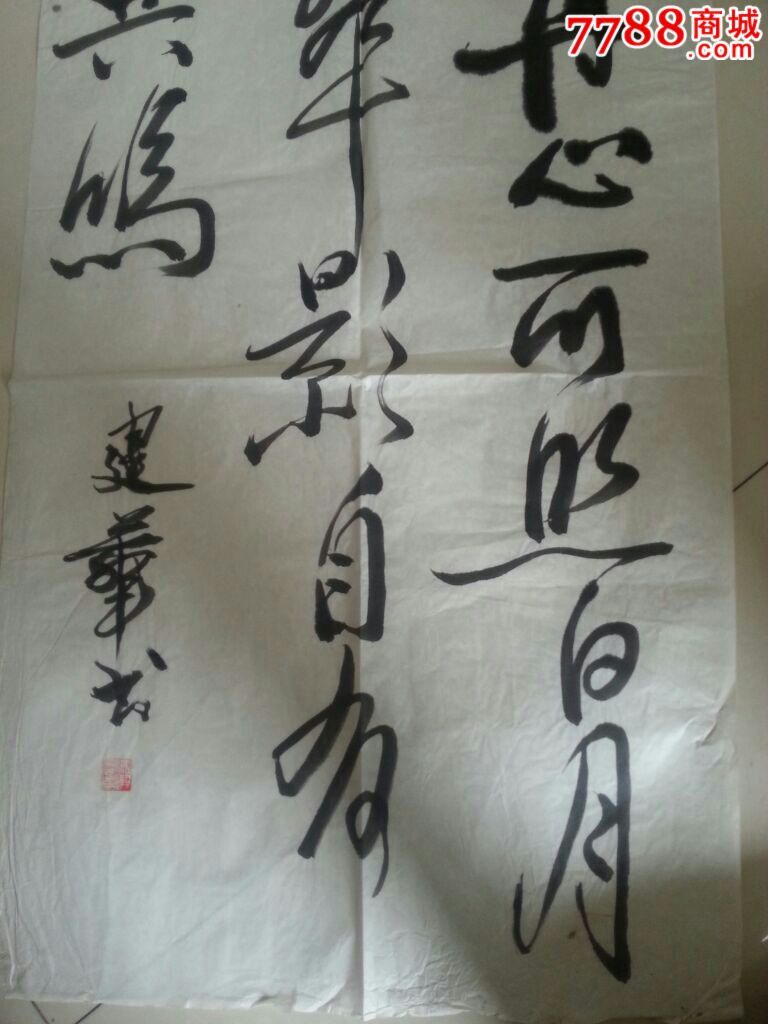 丹心可照日月
单影自有
共鸣
建华书
7788商城
.com